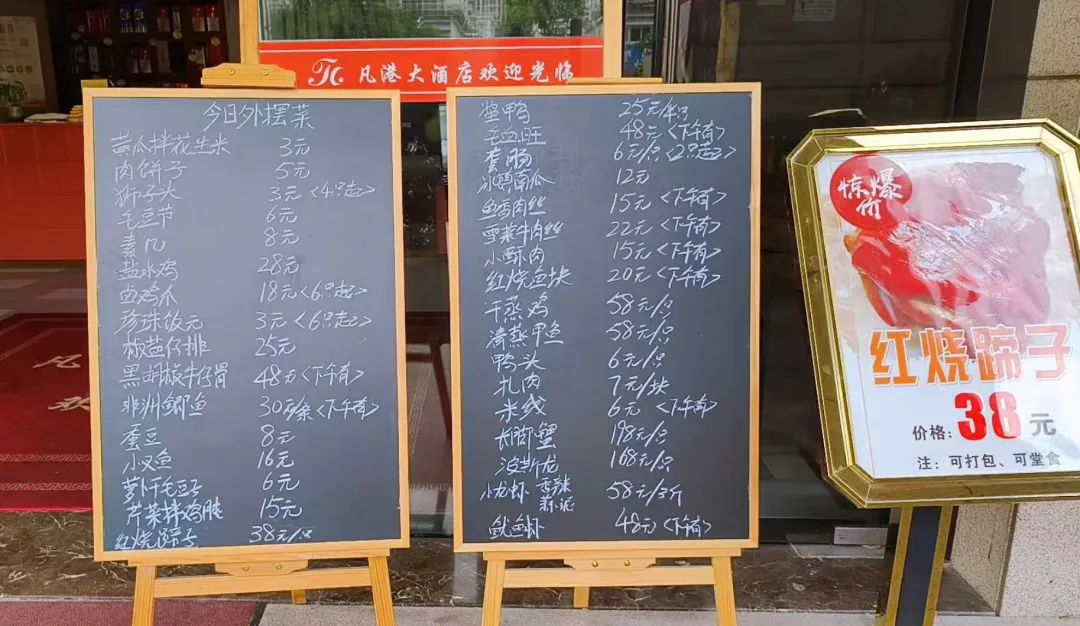 凡港大酒店欢迎光临
今日外摆菜
黄瓜拌花生米 3元
肉饼子 5元
狮子头 3元<4只起>
毛豆节 6元
素几 8元
盐水鸡 28元
卤鸡爪 18元<6只起>
珍珠饭元 3元<6只起>
椒盐仔排 25元
黑胡椒牛仔骨 48元<下午有>
非洲鲫鱼 30元/条<下午有>
蚕豆 8元
小叉鱼 16元
萝卜干毛豆子 6元
芹菜拌鸡胗 15元
红烧蹄子 38元/只
酱鸭 25元/半只
毛血旺 48元<下午有>
套肠 6元/只<2只起>
南瓜 12元
鱼香肉丝 15元<下午有>
雪菜牛肉丝 22元<下午有>
小酥肉 15元<下午有>
红烧鱼块 20元<下午有>
干蒸鸡 58元/只
清蒸甲鱼 58元/只
鸭头 6元/只
扎肉 7元/块
米线 6元<下午有>
长脚蟹 198元/只
波斯龙 168元/只
小龙虾 香辣 蒜泥 58元/3斤
鱿鱼虾 48元<下午有>
惊爆价
红烧蹄子
价格:38元
注:可打包、可堂食
凡
欢